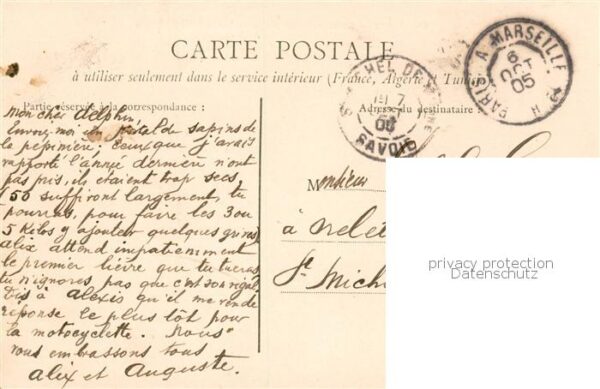 CARTE POSTALE
à utiliser seulement dans le service intérieur (France, Algérie et Tunisie)
Partie réservée à la correspondance :
Adresse du destinataire :
PARIS A MARSEILLE
6
OCT
05
ST MICHEL DE
7
05
SAVOIE
mon cher delphin
Envoi-moi de sapins de
la pepinière. Ceux que j'avais
rapporté l'année dernière n'ont
pas pris, ils étaient trop secs,
(50 suffiront largement, tu
pourras, pour faire les 3 ou
5 Kilos y ajouter quelques grives
alix attend impatiemment
le premier lievre que tu tueras
tu n'ignores pas que c'est son régal.
Dis à alexis qu'il me rende
réponse le plus tôt pour
la motocyclette. Nous
vous embrassons tous
alix et Auguste.
Monsieur
à
St Mich
privacy protection
Datenschutz